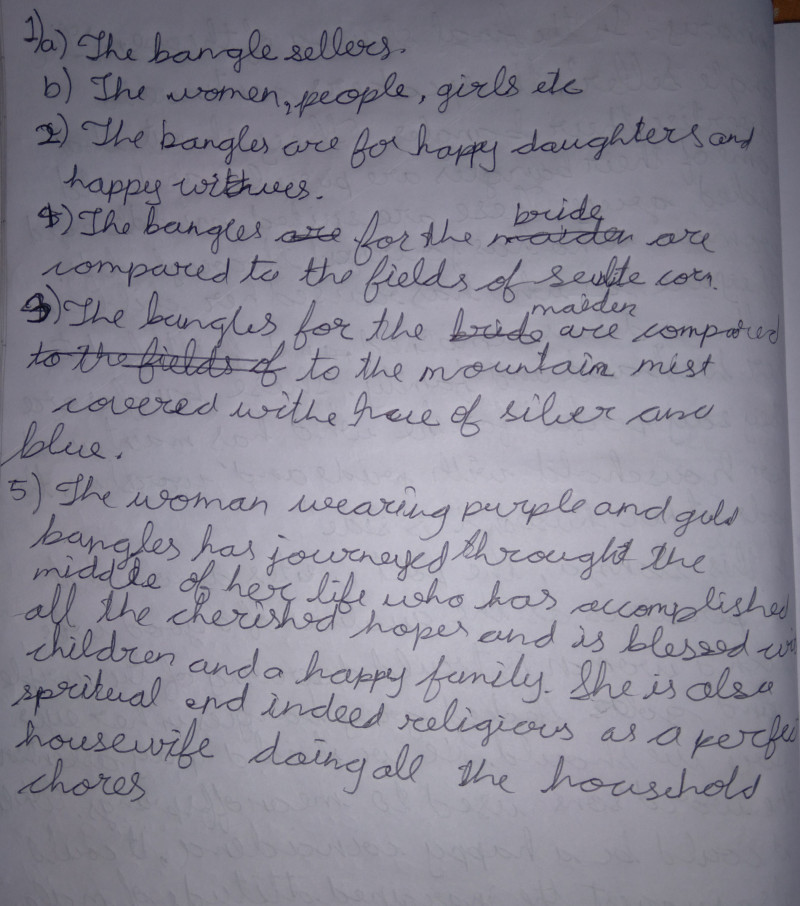 1)a) The bangle sellers.
b) The women, people, girls etc
2) The bangles are for happy daughters and
happy wives.
4) The bangles for the bride are
compared to the fields of corn.
3) The bangles for the maiden are compared
to the mountain mist
covered withe hue of silver and
blue.
5) The woman wearing purple and gold
bangles has journeyed throught the
middle of her life who has accomplished
all the cherished hopes and is blessed
children and a happy family. She is also
spritual and indeed religious as a perfe
housewife doing all the household
chores